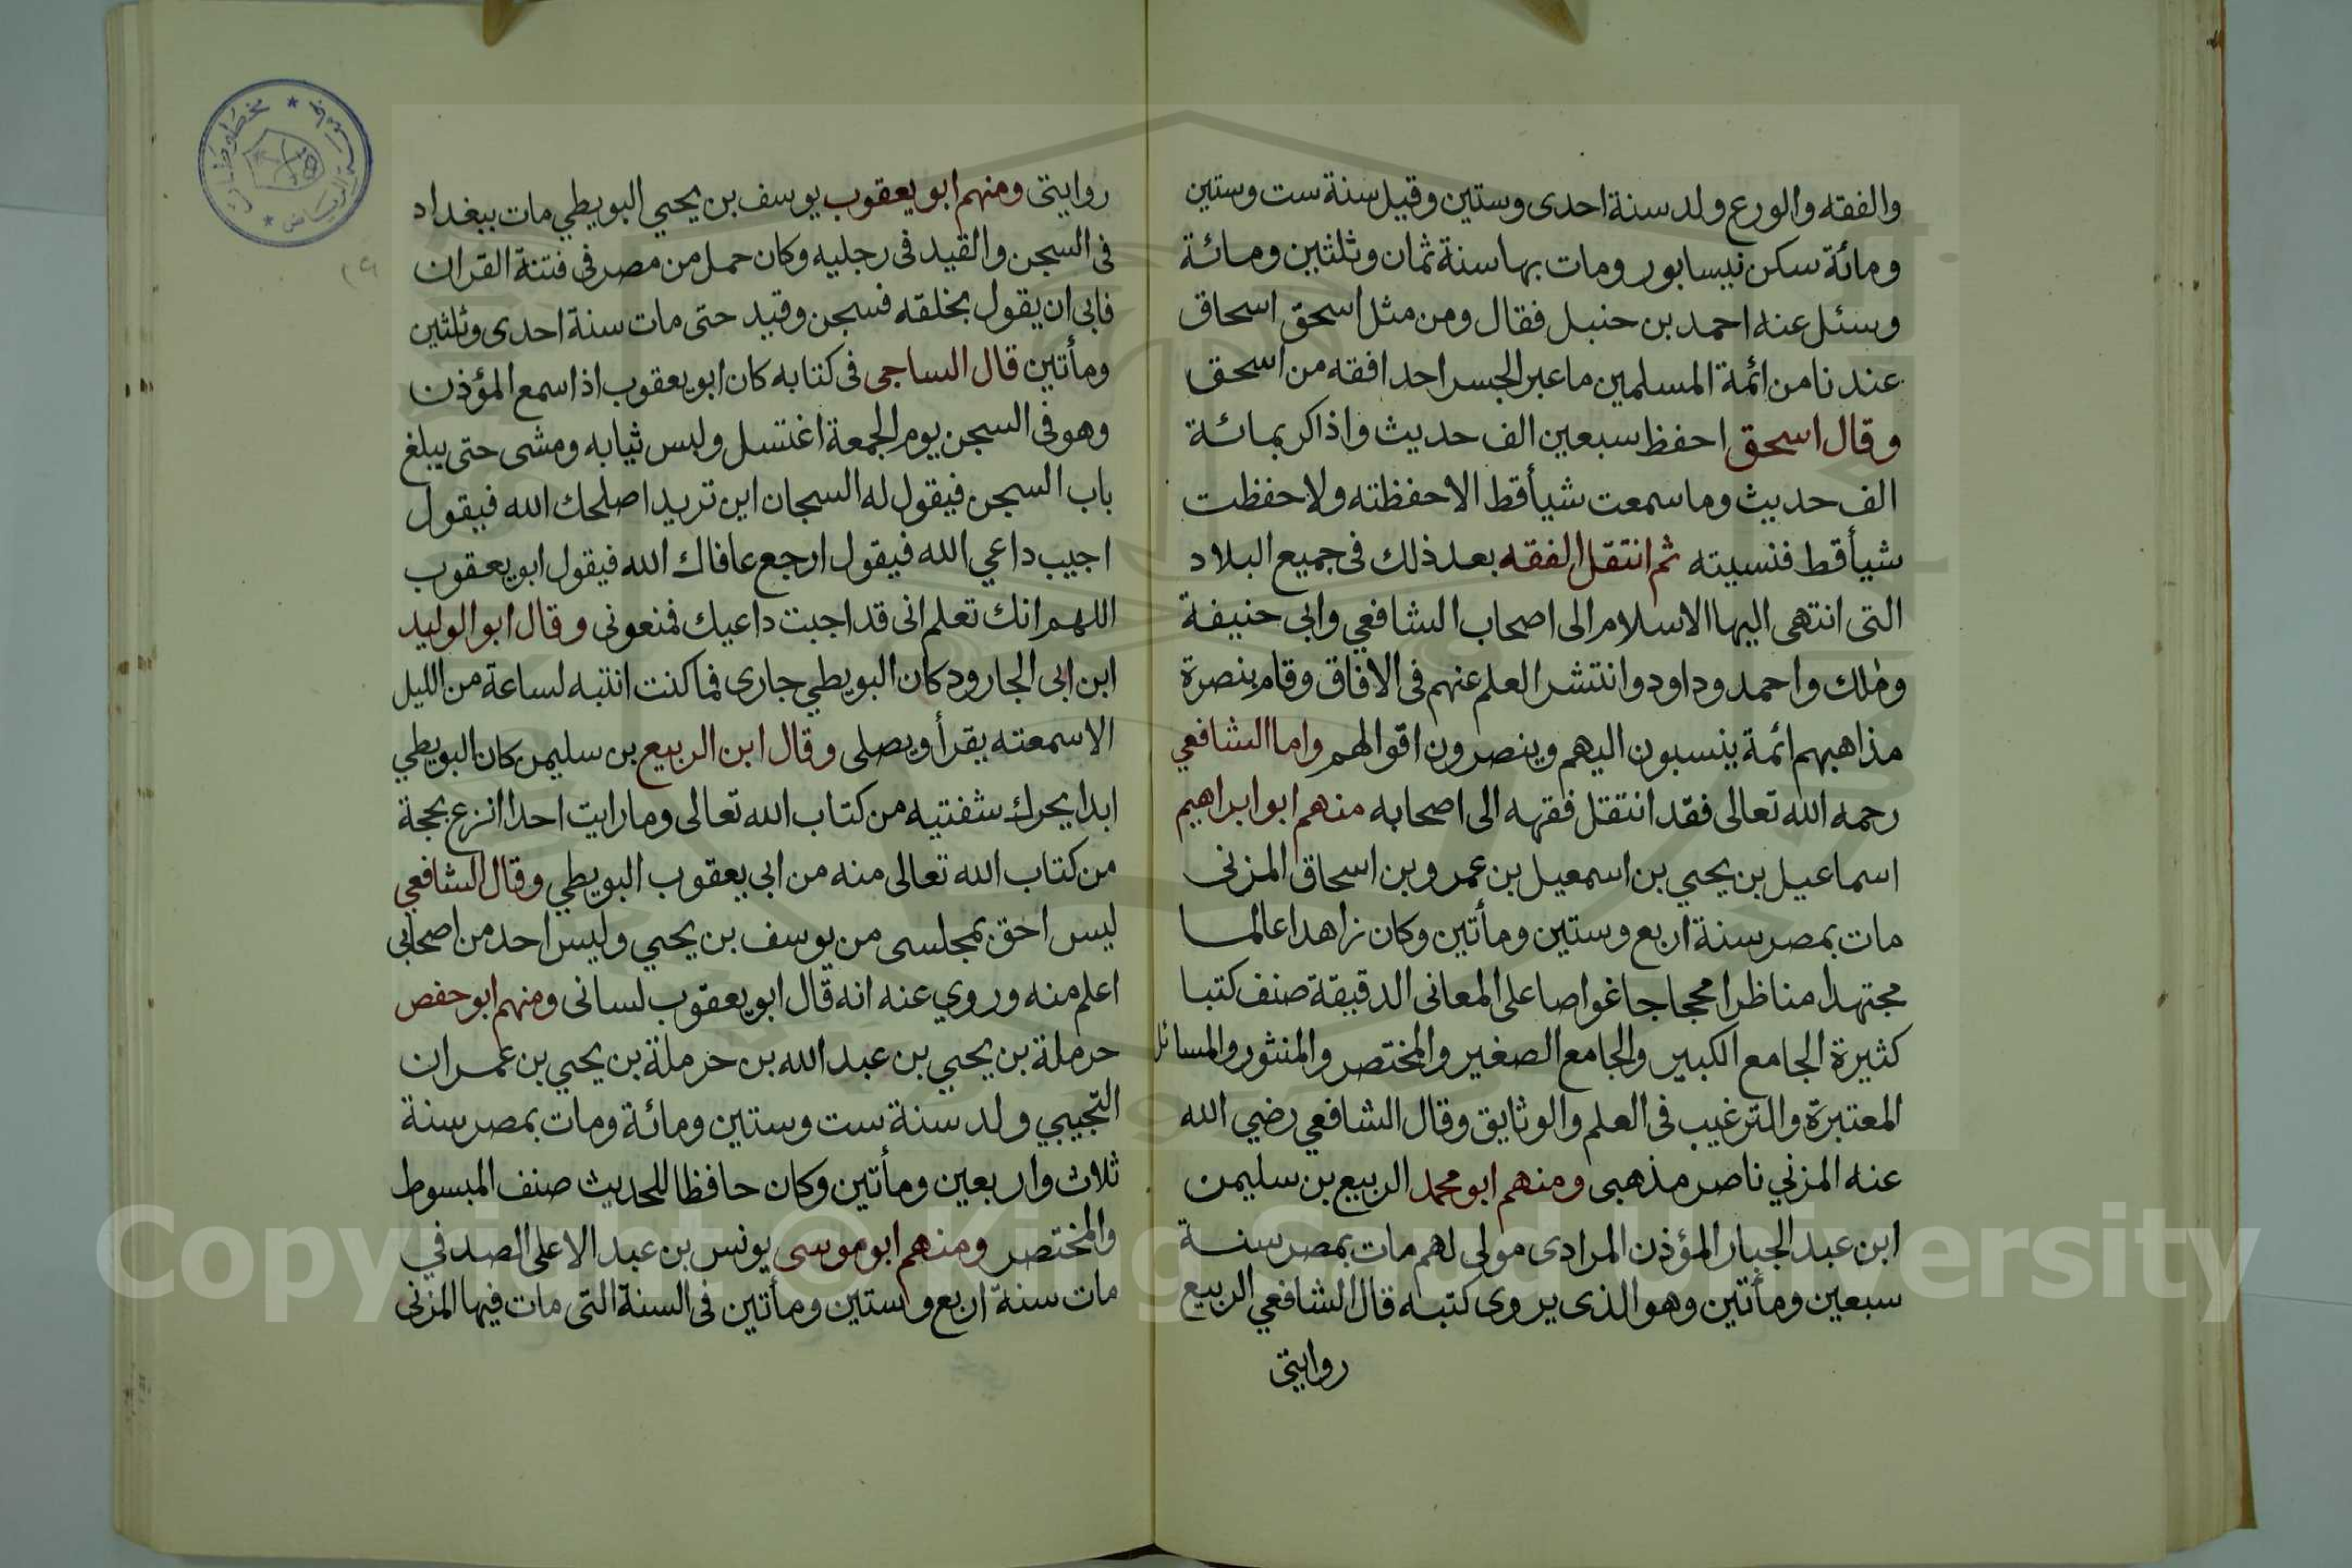 والفقه والورع ولد سنة احدى وستين وقيل سنة ست وستين
ومائة سكن نيسابور ومات بها سنة ثمان وثلثين ومائة
وسئل عنه احمد بن حنبل فقال ومن مثل اسحق اسحاق
عندنا من ائمة المسلمين ما عبر الجسر احد افقه من اسحق
وقال اسحق احفظ سبعين الف حديث واذاكر بمائة
الف حديث وما سمعت شيأ قط الا حفظته ولا حفظت
شيأ قط فنسيته ثم انتقل الفقه بعد ذلك فى جميع البلاد
التى انتهى اليها الاسلام الى اصحاب الشافعي وابى حنيفة
ومٰلك واحمد وداود وانتشر العلم عنهم فى الافاق وقام بنصرة
مذاهبهم ائمة ينسبون اليهم وينصرون اقوالهم واما الشافعي
رحمه الله تعالى فقد انتقل فقهه الى اصحابه منهم ابو ابراهيم
اسماعيل بن يحيي بن اسمعيل بن عمرو بن اسحاق المزنى
مات بمصر سنة اربع وستين ومأتين وكان زاهدا عالما
مجتهدا مناظرا محجاجا غواصا على المعانى الدقيقة صنف كتبا
كثيرة الجامع الكبير والجامع الصغير والمختصر والمنثور والمسائل
المعتبرة والترغيب فى العلم والوثايق وقال الشافعي رضي الله
عنه المزني ناصر مذهبى ومنهم ابو محمد الربيع بن سليمن
ابن عبد الجبار المؤذن المرادى مولى لهم مات بمصر سنة
سبعين ومأتين وهو الذى يروى كتبه قال الشافعي الربيع
روايتى
روايتى ومنهم ابو يعقوب يوسف بن يحيي البويطي مات ببغداد
فى السجن والقيد فى رجليه وكان حمل من مصر فى فتنة القران
فابى ان يقول بخلقه فسجن وقيد حتى مات سنة احدى وثلثين
ومأتين قال الساجى فى كتابه كان ابو يعقوب اذا سمع المؤذن
وهو فى السجن يوم الجمعة اغتسل ولبس ثيابه ومشى حتى يبلغ
باب السجن فيقول له السجان اين تريد اصلحك الله فيقول
اجيب داعي الله فيقول ارجع عافاك الله فيقول ابو يعقوب
اللهم انك تعلم انى قد اجبت داعيك فمنعونى وقال ابو الوليد
ابن ابى الجارود كان البويطي جارى فما كنت انتبه لساعة من الليل
الا سمعته يقرأ ويصلى وقال ابن الربيع بن سليمن كان البويطي
ابدا يحرك شفتيه من كتاب الله تعالى وما رايت احدا انزع بحجة
من كتاب الله تعالى منه من ابي يعقوب البويطي وقال الشافعي
ليس احق بمجلسى من يوسف بن يحيي وليس احد من اصحابى
اعلم منه وروي عنه انه قال ابو يعقوب لسانى ومنهم ابو حفص
حرملة بن يحيي بن عبد الله بن حرملة بن يحيي بن عمران
التجيبي ولد سنة ست وستين ومائة ومات بمصر سنة
ثلاث واربعين ومأتين وكان حافظا للحديث صنف المبسوط
والمختصر ومنهم ابو موسى يونس بن عبد الاعلى الصدفي
مات سنة اربع وستين ومأتين فى السنة التى مات فيها المزنى
Copyright © King Saud University